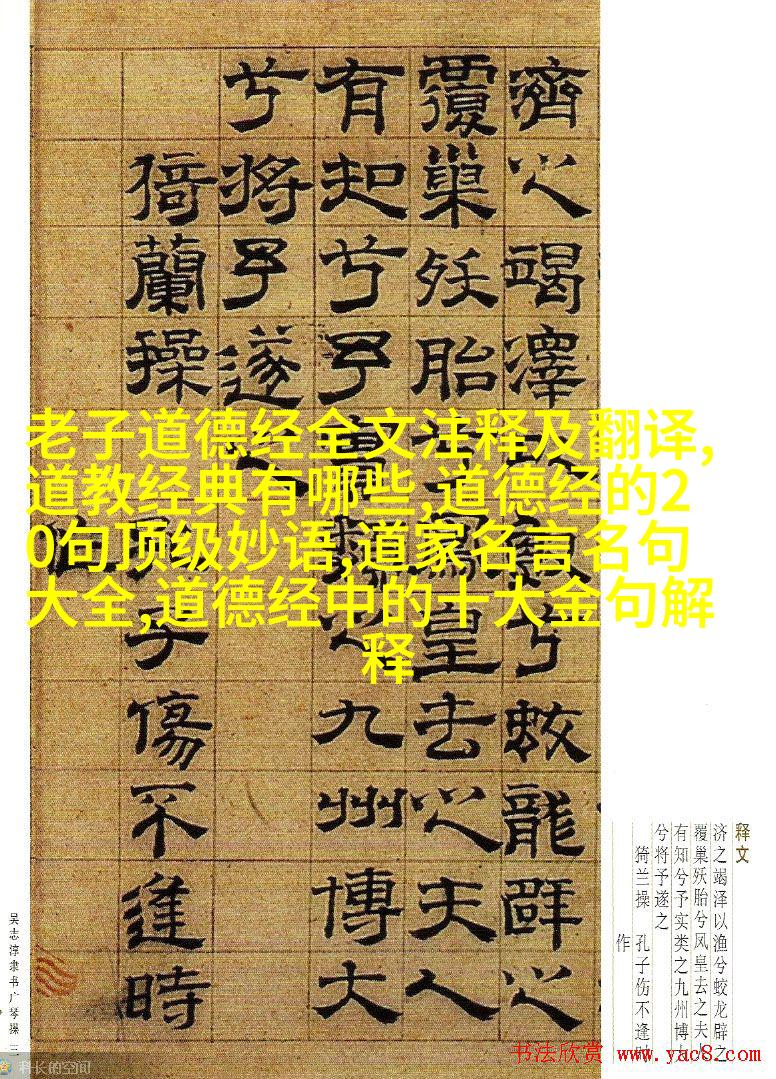 濟之竭澤兮蛟龍辟之
覆巢殀胎兮鳳皇去之夫人
有知兮予實類之九州博大
兮將予遂之
猗蘭操 孔子傷不逢時
作
老子道德经全文注释及翻译,
道教经典有哪些,道德经的2
0句顶级妙语,道家名言名句
大全,道德经中的十大金句解
释
释文
济之竭泽以渔兮蛟龙辟之
覆巢殀胎兮凤皇去之夫人
有知兮予实类之九州博大
兮将予遂之
猗兰操 孔子伤不逢时
作
吴志淳隶书广琴操 三
科长的空间
书法欣赏 www.yac8.com